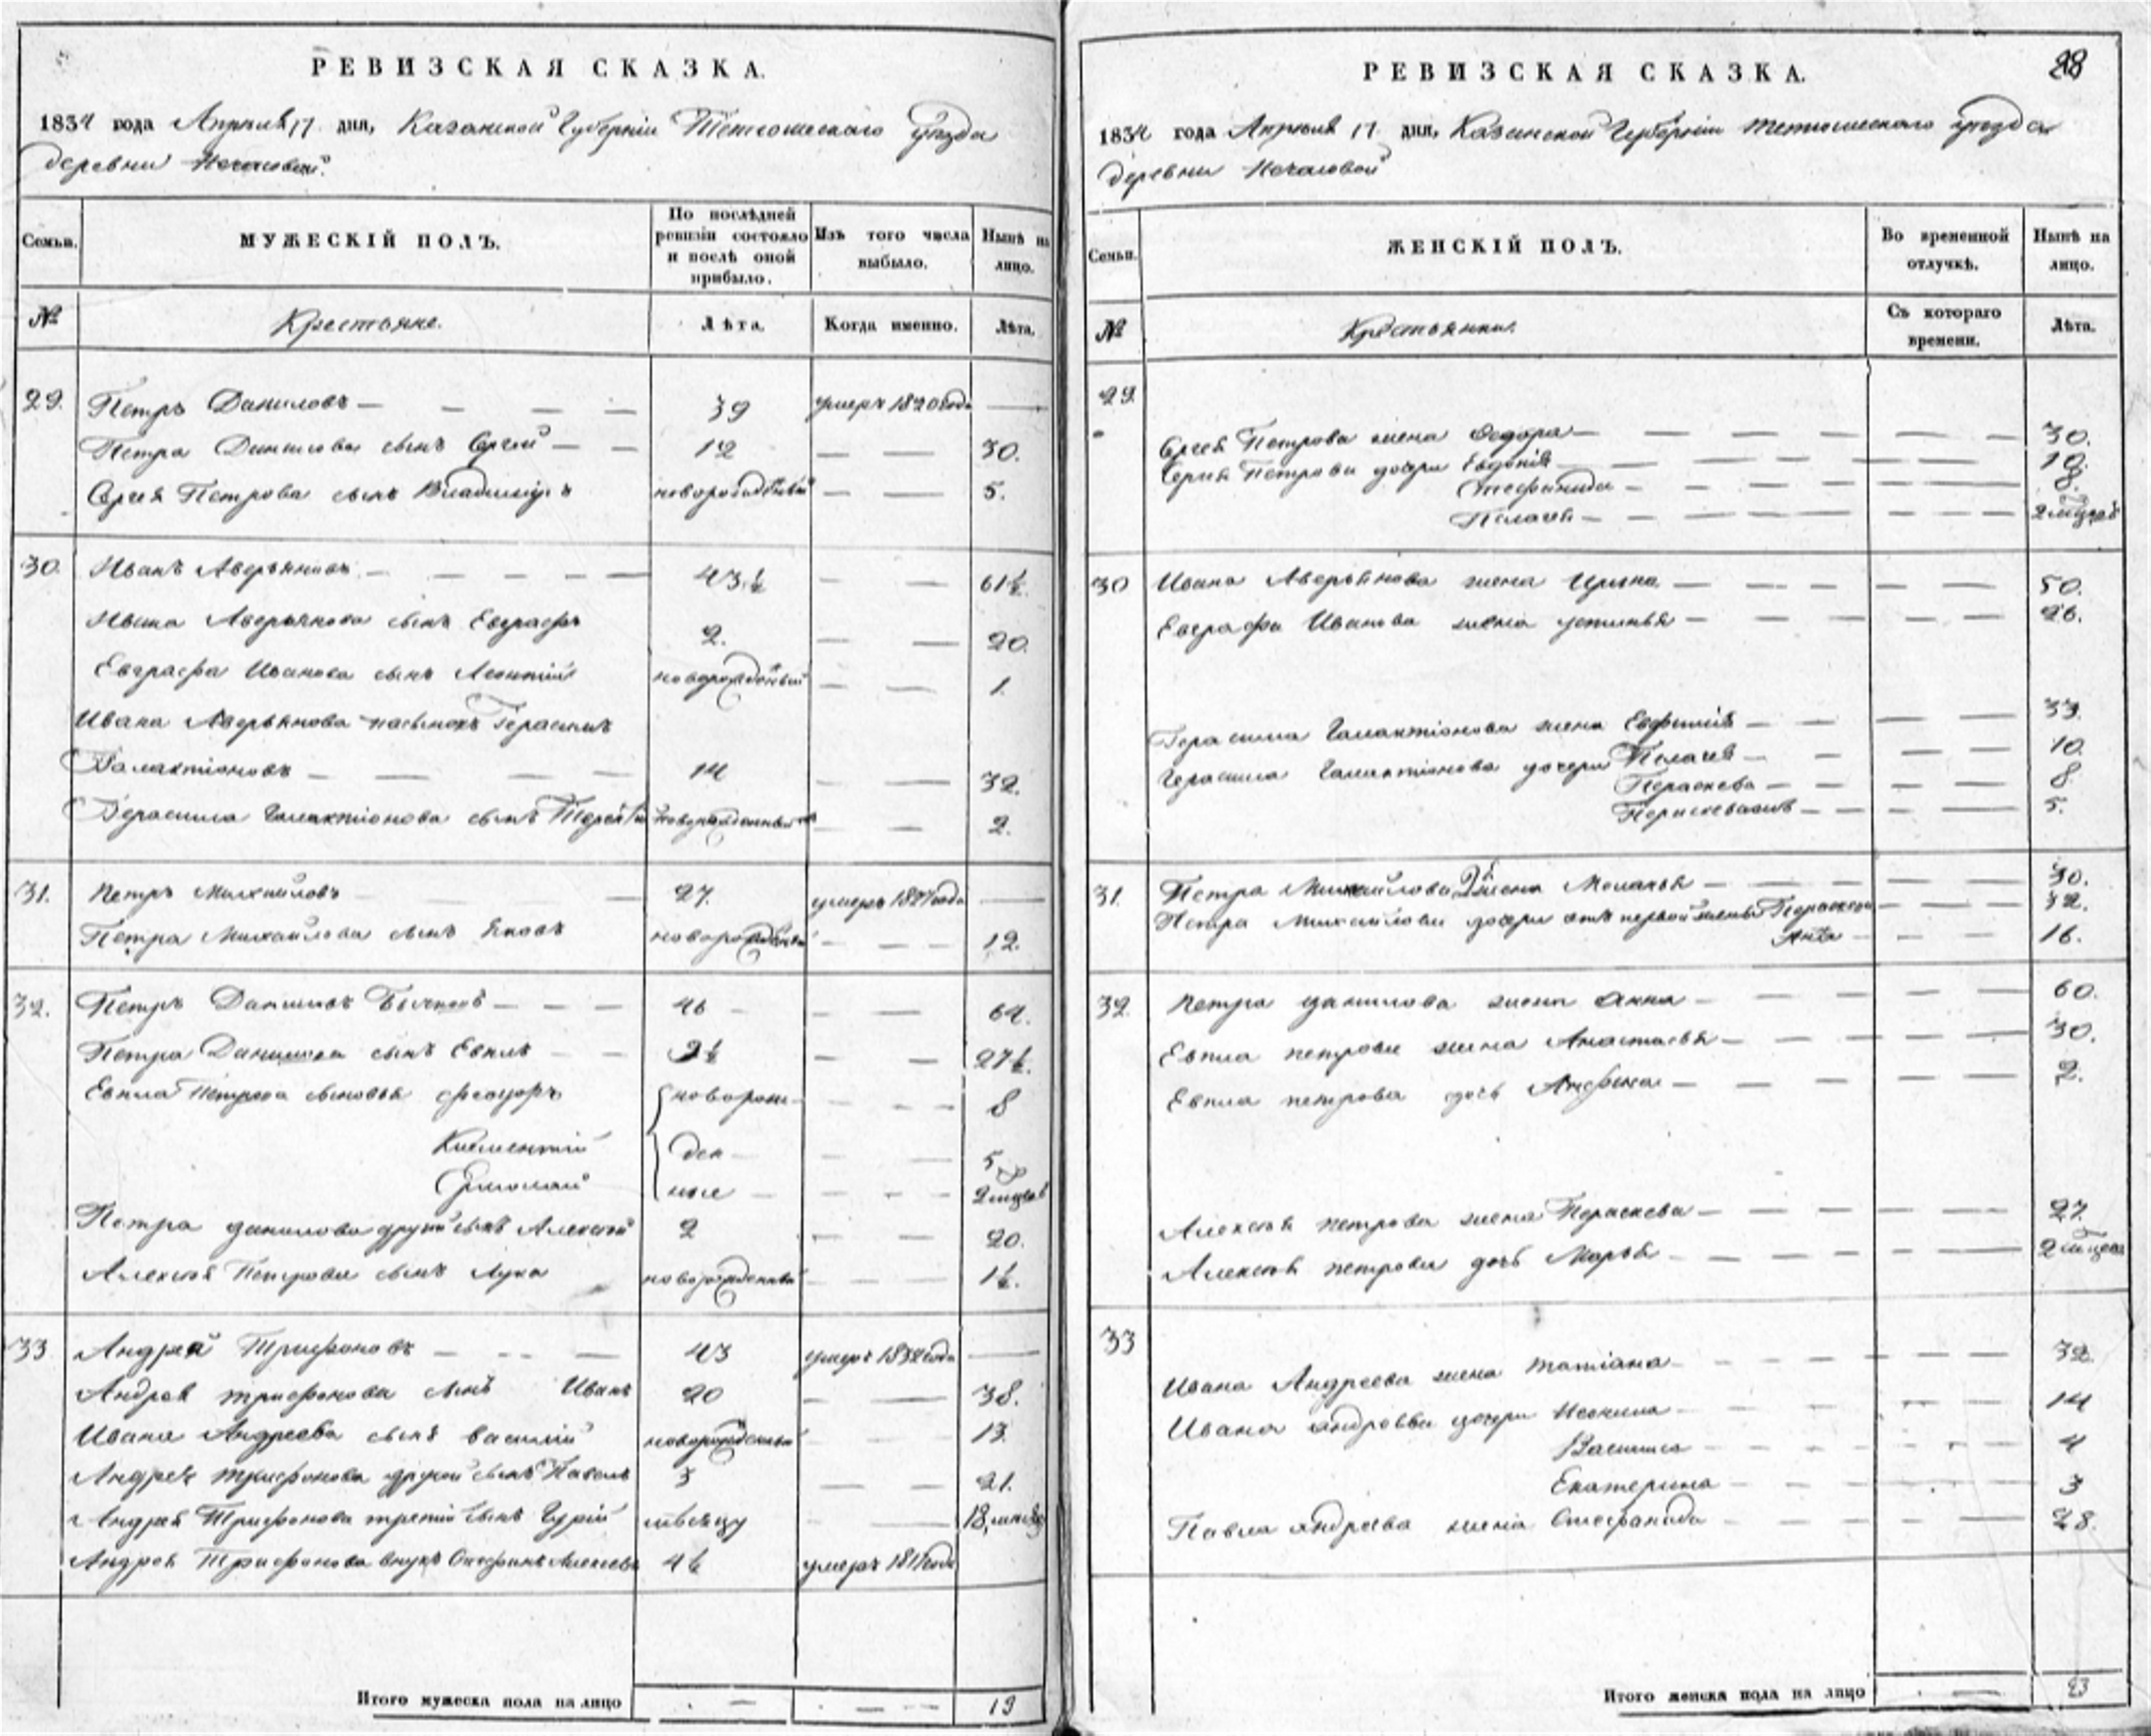 РЕВИЗСКАЯ СКАЗКА.
1834 года Апреля 17 дня, Казанской Губернии Тетюшескаго уезда
деревни
Семьи.
МУЖЕСКІЙ ПОЛЪ.
По послѣдней ревизіи состояло и послѣ оной прибыло.
Изъ того числа выбыло.
Нынѣ на лицо.
№
Крестьяне.
Лѣта.
Когда именно.
Лѣта.
29. Петръ Даниловъ — 39 умеръ 1820 года —
Петра Данилова сынъ Сергей — 12 — 30.
Сергея Петрова сынъ Владимиръ новорожденный — 5.
30. Иванъ Аверьяновъ — 43½ — 61½.
Ивана Аверьянова сынъ Евграфъ 2. — 20.
Евграфа Иванова сынъ Леонтий новорожденный — 1.
Ивана Аверьянова пасынокъ Герасимъ
Галактіоновъ — 14 — 32.
Герасима Галактіонова сынъ новорожденный — 2.
31. Петръ Михайловъ — 27. умеръ года —
Петра Михайлова сынъ Яковъ новорожденный — 12.
32. Петръ Даниловъ — 46 — 64.
Петра Данилова сынъ Евплъ — 9½ — 27½.
Евпла Петрова сыновья Феодоръ новорож- — 8
Климентий ден — 5
Ермолай ные — 2 месяцовъ
Петра Данилова другой сынъ Алексей 2 — 20.
Алексея Петрова сынъ Лука новорожденный — 1½.
33 Андрей Трифоновъ — 43 умеръ года —
Андрея Трифонова сынъ Иванъ 20 — 38.
Ивана Андреева сынъ Василий новорожденный — 13.
Андрея Трифонова другой сынъ Павелъ 3 — 21.
Андрея Трифонова третий сынъ Гурій месяцу — 18,
Андрея Трифонова внукъ умеръ года
Итого мужеска пола на лицо — — 19
РЕВИЗСКАЯ СКАЗКА.
1834 года Апреля 17 дня, Казанской Губернии Тетюшескаго уезда
деревни
Семьи.
ЖЕНСКІЙ ПОЛЪ.
Во временной отлучкѣ.
Нынѣ на лицо.
№
Крестьянки.
Съ котораго времени.
Лѣта.
29
Сергея Петрова жена Федора — 30.
Сергея Петрова дочери Евдокія — 10.
Степанида — 8.
Пелагея — 2 месяцовъ
30 Ивана Аверьянова жена Ирина — 50.
Евграфа Иванова жена Устинья — 26.
Герасима Галактіонова жена Евфимія — 33.
Герасима Галактіонова дочери Пелагея — 10.
Пераскева — 8.
— 5.
31. Петра Михайлова 2я жена Меланья — 30.
Петра Михайлова дочери отъ первой жены Пераскева —
Анна — 16.
32. Петра Данилова жена Анна — 60.
Евпла Петрова жена Анастасья — 30.
Евпла Петрова дочь Анфиса — 2.
Алексея Петрова жена Пераскева — 27.
Алексея Петрова дочь Марья — 2 месяца
33
Ивана Андреева жена Татіана — 32.
Ивана Андреева дочери Неонила — 14
Василиса — 4
Екатерина — 3
Павла Андреева жена Степанида — 28.
Итого женска пола на лицо — 23